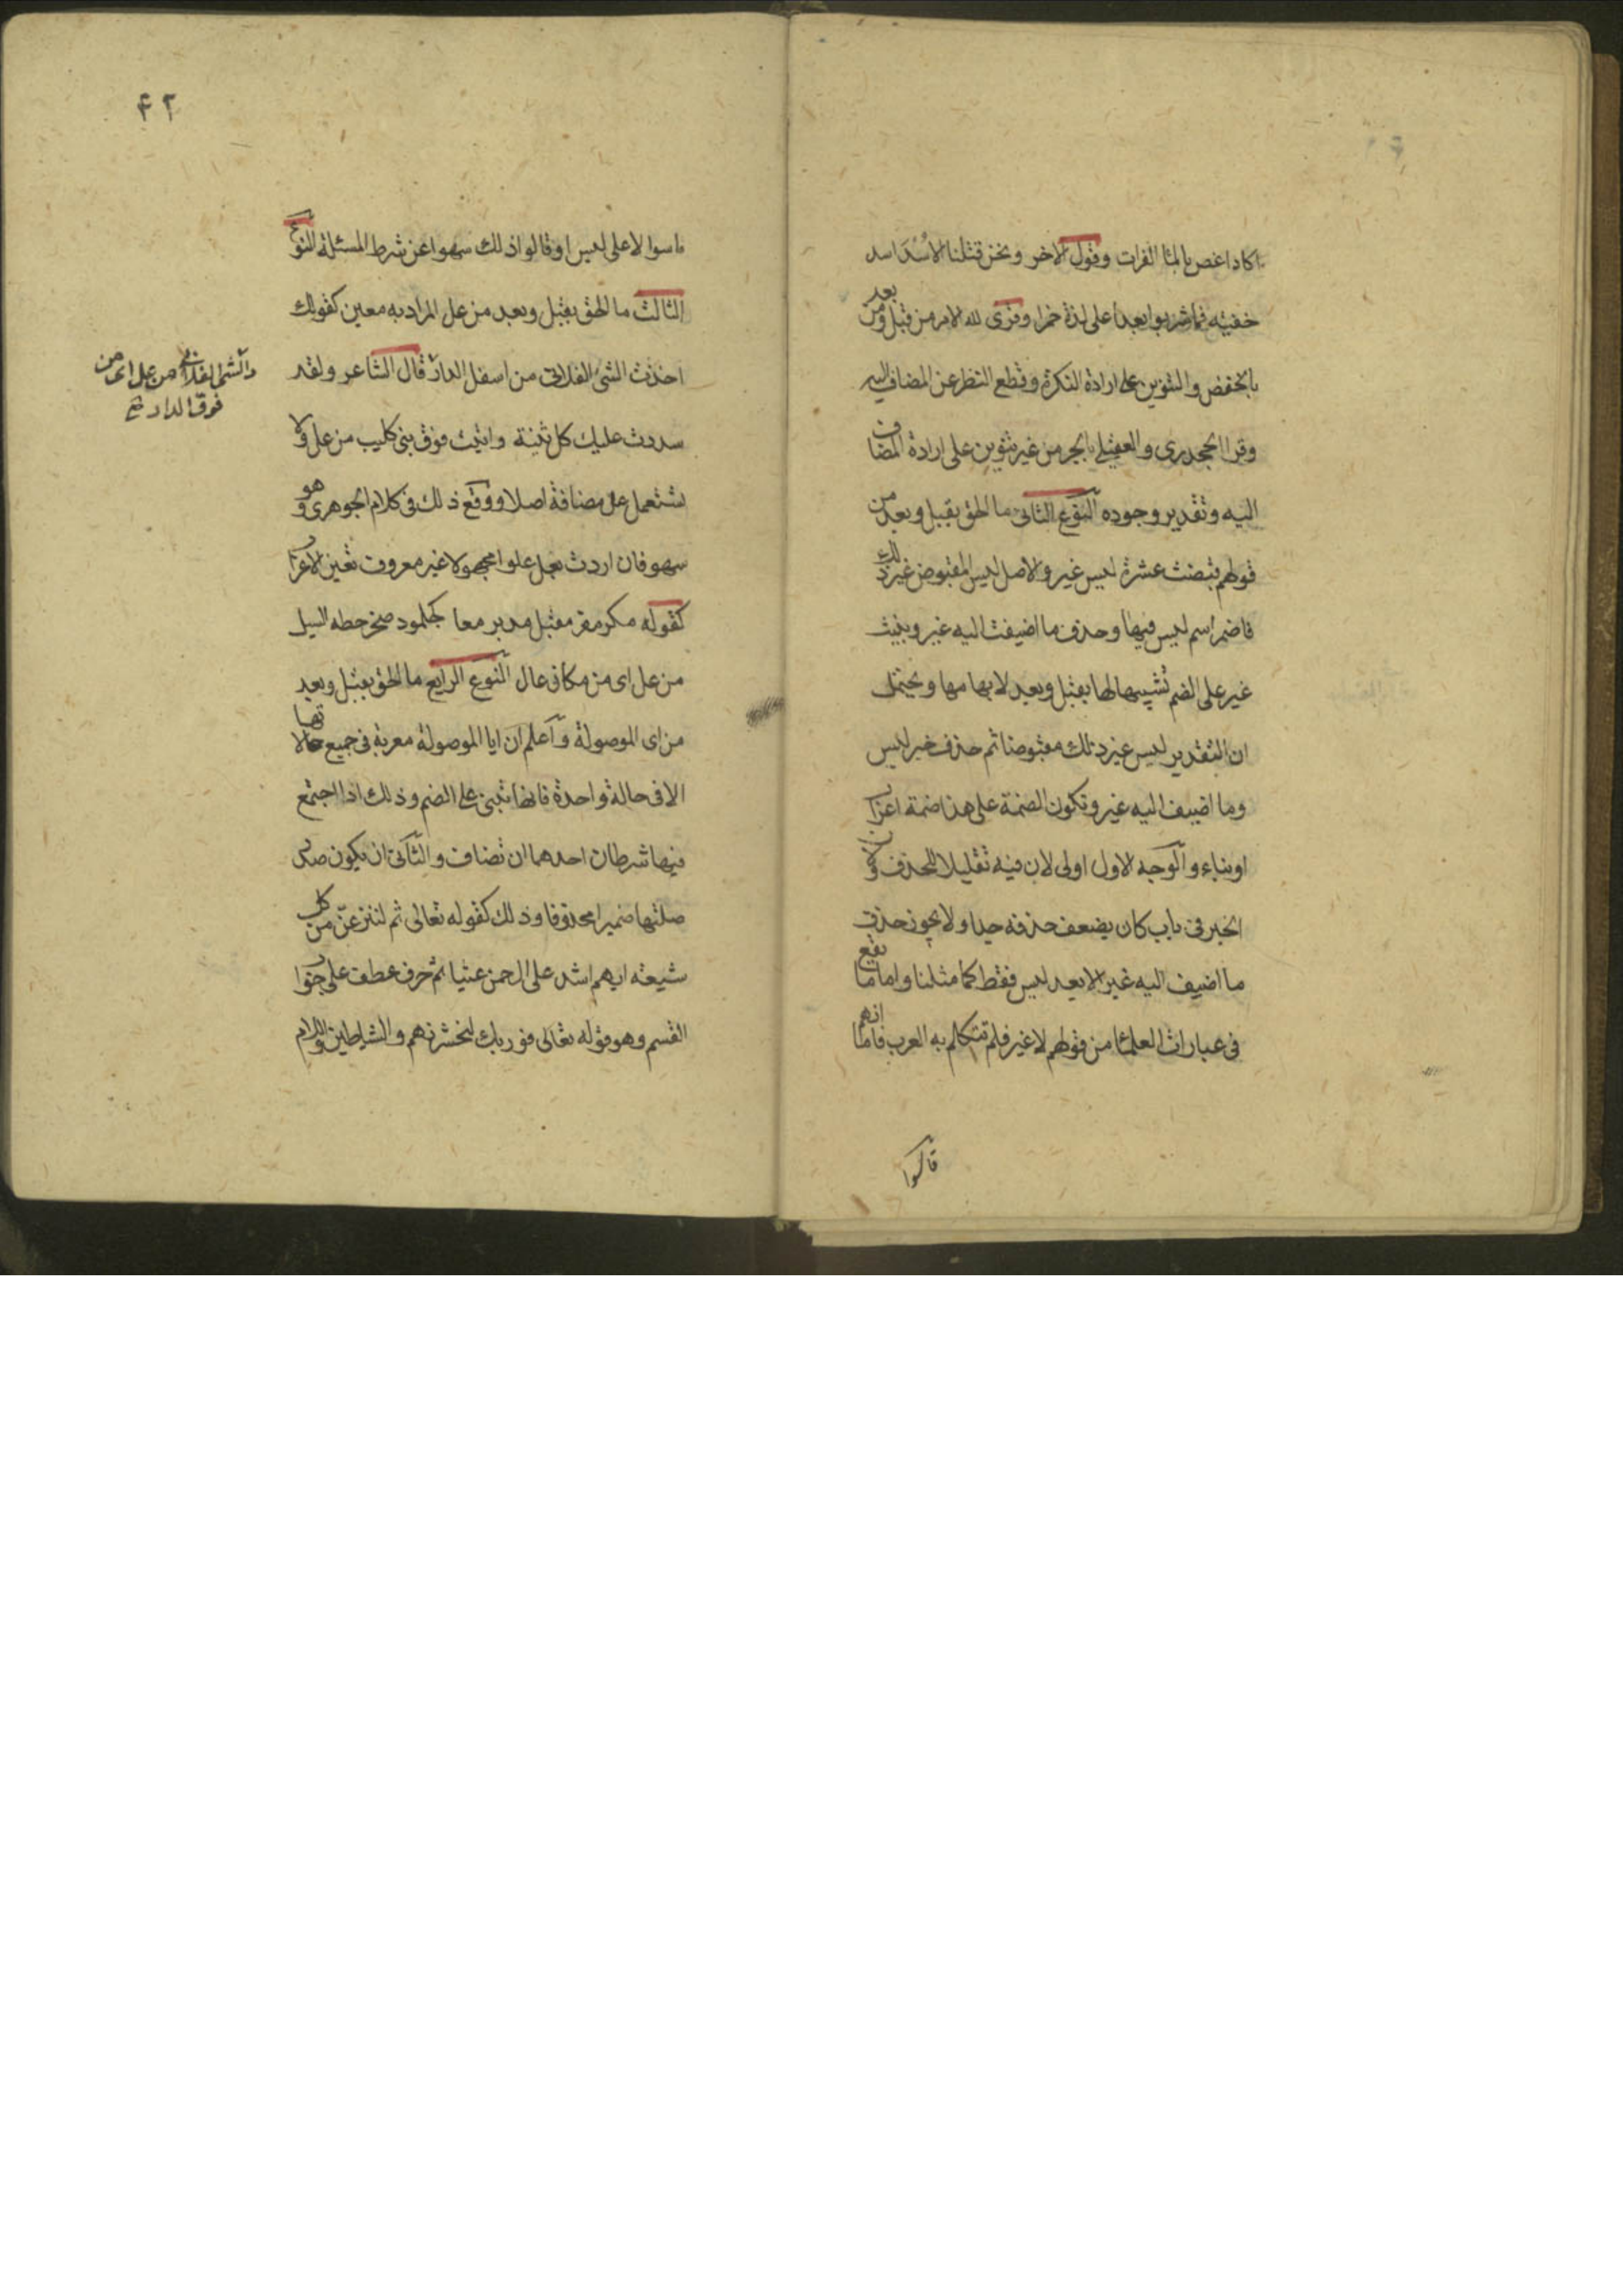 اكاد اغص بالماء الفرات وقول الاخر ونحن قتلنا الاسد اسد
خفيه فما شربوا بعدا على لذة خمرا وقرى لله الامر من قبل ومن بعد
بالخفض والتنوين على ارادة النكرة وقطع النظر عن المضاف اليه
وقرا الجحدرى والعقيلى بالجر من غير تنوين على ارادة المضاف
اليه وتقدير وجوده النوع الثانى ما الحق بقبل وبعد من
قولهم قبضت عشرة ليس غير والاصل ليس المقبوض غير ذلك
فاضمر اسم ليس فيها وحذف ما اضيفت اليه غير وبنيت
غير على الضم تشبيها لها بقبل وبعد لابهامها ويحتمل
ان التقدير ليس غير ذلك مقبوضا ثم حذف خبر ليس
وما اضيف اليه غير وتكون الضمة على هذا ضمة اعراب
او بناء والوجه الاول اولى لان فيه تقليلا للحذف ولان
الخبر فى باب كان يضعف حذفه جدا ولا يجوز حذف
ما اضيف اليه غير الا بعد ليس فقط كما مثلنا واما ما يقع
فى عبارات العلماء من قولهم لا غير فلم تتكلم به العرب فاما انهم
قاسوا
ماسوا لا على ليس او قالوا ذلك سهوا عن شرط المسئلة النوع
الثالث ما الحق بقبل وبعد من عل المراد به معين كقولك
اخذت الشئ الفلانى من اسفل الدار قال الشاعر ولقد
والشئ الفلانى من عل اى من
فوق الدار خ
سددت عليك كل ثنية واتيت فوق بنى كليب من عل ولا
تستعمل عل مضافة اصلا ووقع ذلك فى كلام الجوهرى وهو
سهو فان اردت بعل علوا مجهولا غير معروف تعين الاعراب
كقوله مكر مفر مقبل مدبر معا كجلمود صخر حطه السيل
من عل اى من مكان عال النوع الرابع ما الحق بقبل وبعد
من اى الموصولة واعلم ان ايا الموصولة معربة فى جميع حالاتها
الا فى حالة واحدة فانها تبنى على الضم وذلك اذا اجتمع
فيها شرطان احدهما ان تضاف والثانى ان يكون صدر
صلتها ضميرا محذوفا وذلك كقوله تعالى ثم لننزعن من كل
شيعة ايهم اشد على الرحمن عتيا ثم حرف عطف على جواب
القسم وهو قوله تعالى فوربك لنحشرنهم والشياطين واللام
٤٢